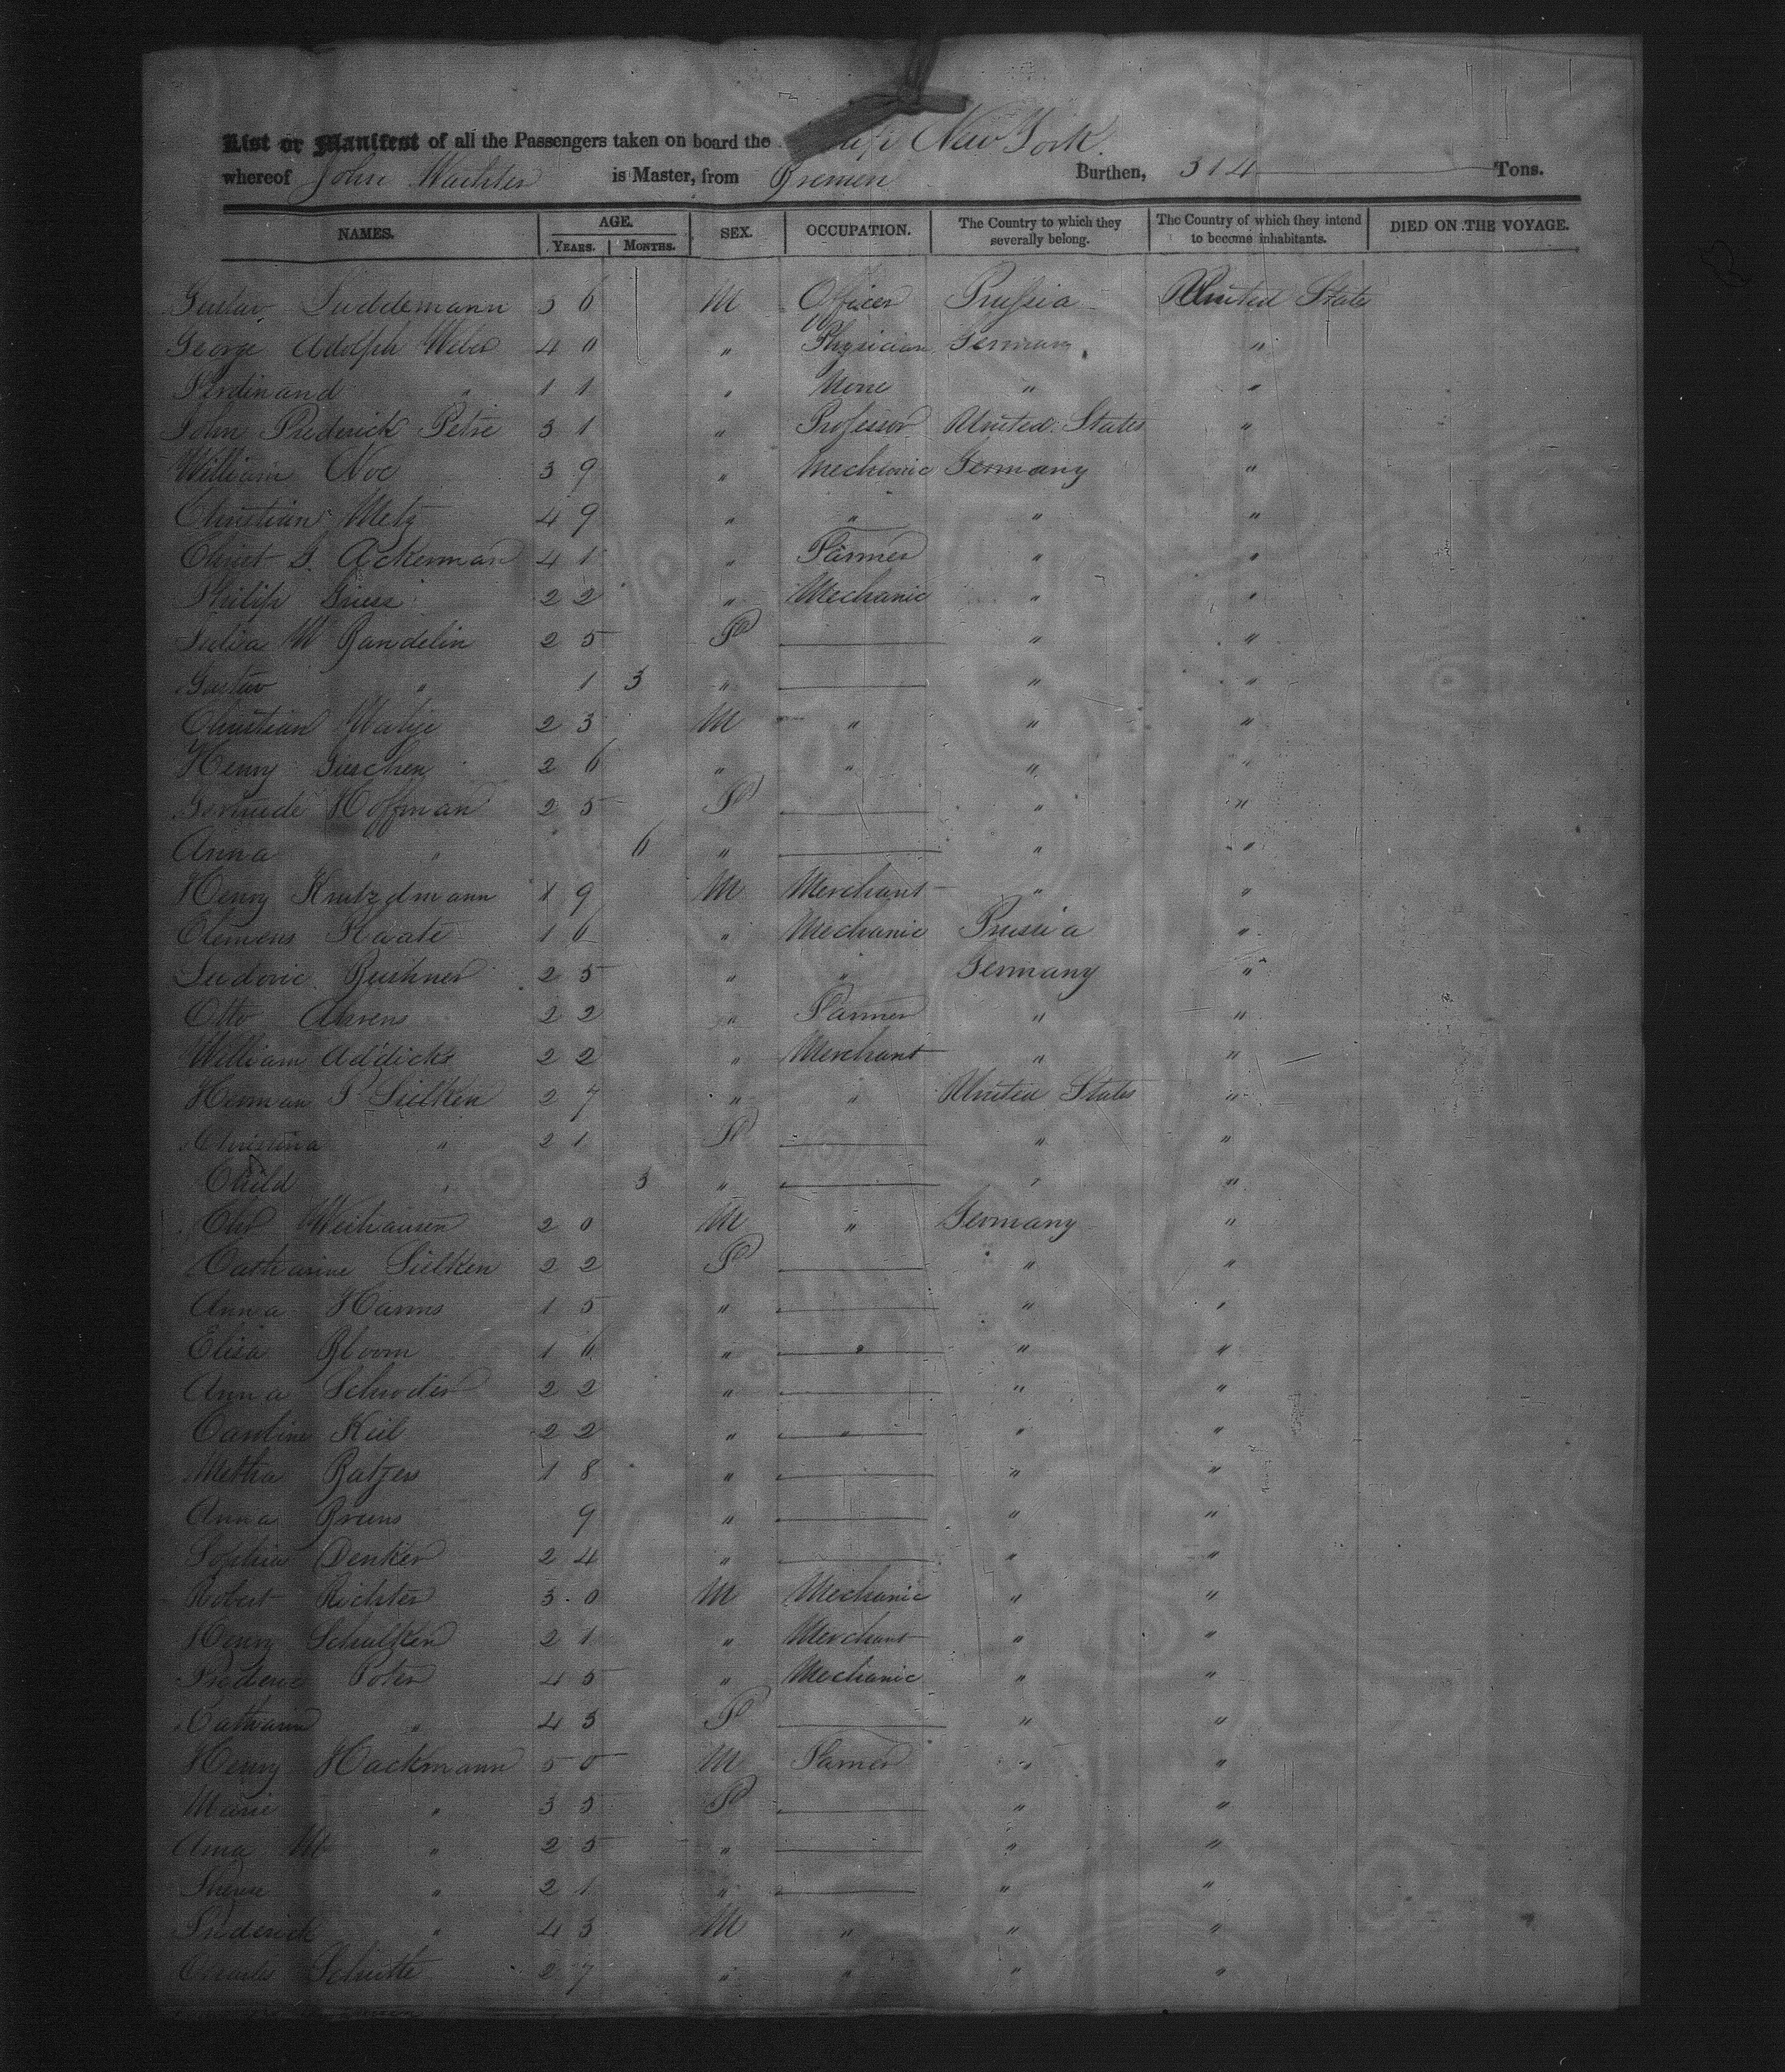 List or Manifest of all the Passengers taken on board the Ship New York.
whereof John Wachter is Master, from Bremen Burthen, 314 Tons.
NAMES. AGE. SEX. OCCUPATION. The Country to which they severally belong. The Country of which they intend to become inhabitants. DIED ON THE VOYAGE.
YEARS. MONTHS.
Gustav Luddemann 36 M Officer Prussia United States
George Adolph Weber 40 " Physician Germany "
Ferdinand " 11 " None " "
John Frederick Petre 31 " Professor United States "
William Noe 39 " Mechanic Germany "
Christian Metz 49 " " " "
Christ G. Ackerman 41 " Farmer " "
Philip 22 " Mechanic " "
Julia W Bandelin 25 F — " "
Gustav " 1 3 " — " "
Christian 23 M " " "
Henry Gieschen 26 " " " "
Gertrude Hoffman 25 F — " "
Anna " 6 " — " "
Henry 19 M Merchant " "
Clemens 16 " Mechanic Prussia "
Ludovic Bushner 25 " " Germany "
Otto Ahrens 22 " Farmer " "
William Addicks 22 " Merchant " "
Herman Sielken 27 " " United States "
Christina " 21 F — " "
Child " 3 " — " "
20 M " Germany "
Catharine Sielken 22 F — " "
Anna Harms 15 " — " "
Elisa Bloom 16 " — " "
Anna Schroder 22 " — " "
Caroline Keil 22 " — " "
Metha Batjer 18 " — " "
Anna Bruns 9 " — " "
Sophia Denker 24 " — " "
Robert Richter 30 M Mechanic " "
Henry Schulken 21 " Merchant " "
Frederic Peter 45 " Mechanic " "
Catharine " 43 F — " "
Henry Hackmann 50 M Farmer " "
Marie " 35 F — " "
Anna M " 25 " — " "
" 21 " — " "
Frederick " 43 M " " "
Charles Schutte 27 " " " "